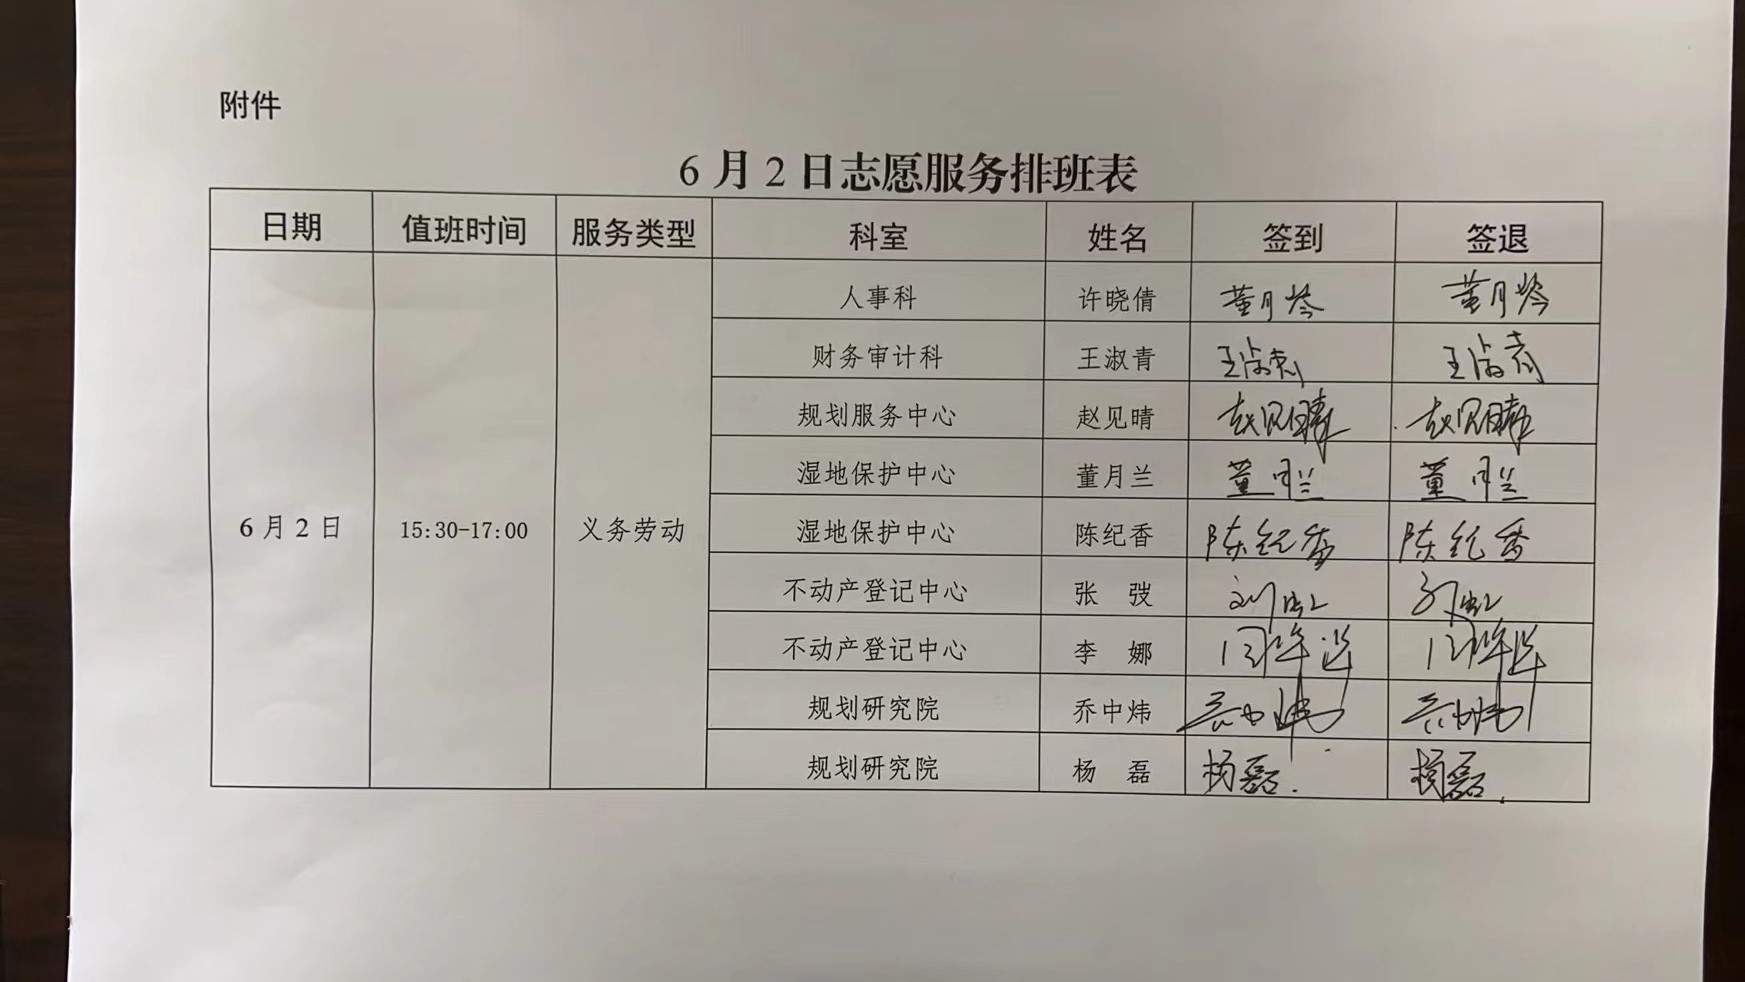 附件
6月2日志愿服务排班表
日期 值班时间 服务类型 科室 姓名 签到 签退
6月2日 15:30-17:00 义务劳动
人事科 许晓倩 董月 董月
财务审计科 王淑青 王淑青 王淑青
规划服务中心 赵见晴 赵见晴 赵见晴
湿地保护中心 董月兰 董月兰 董月兰
湿地保护中心 陈纪香 陈纪香 陈纪香
不动产登记中心 张 弢 刘虹 刘虹
不动产登记中心 李 娜
规划研究院 乔中炜 乔中炜 乔中炜
规划研究院 杨 磊 杨磊. 杨磊.